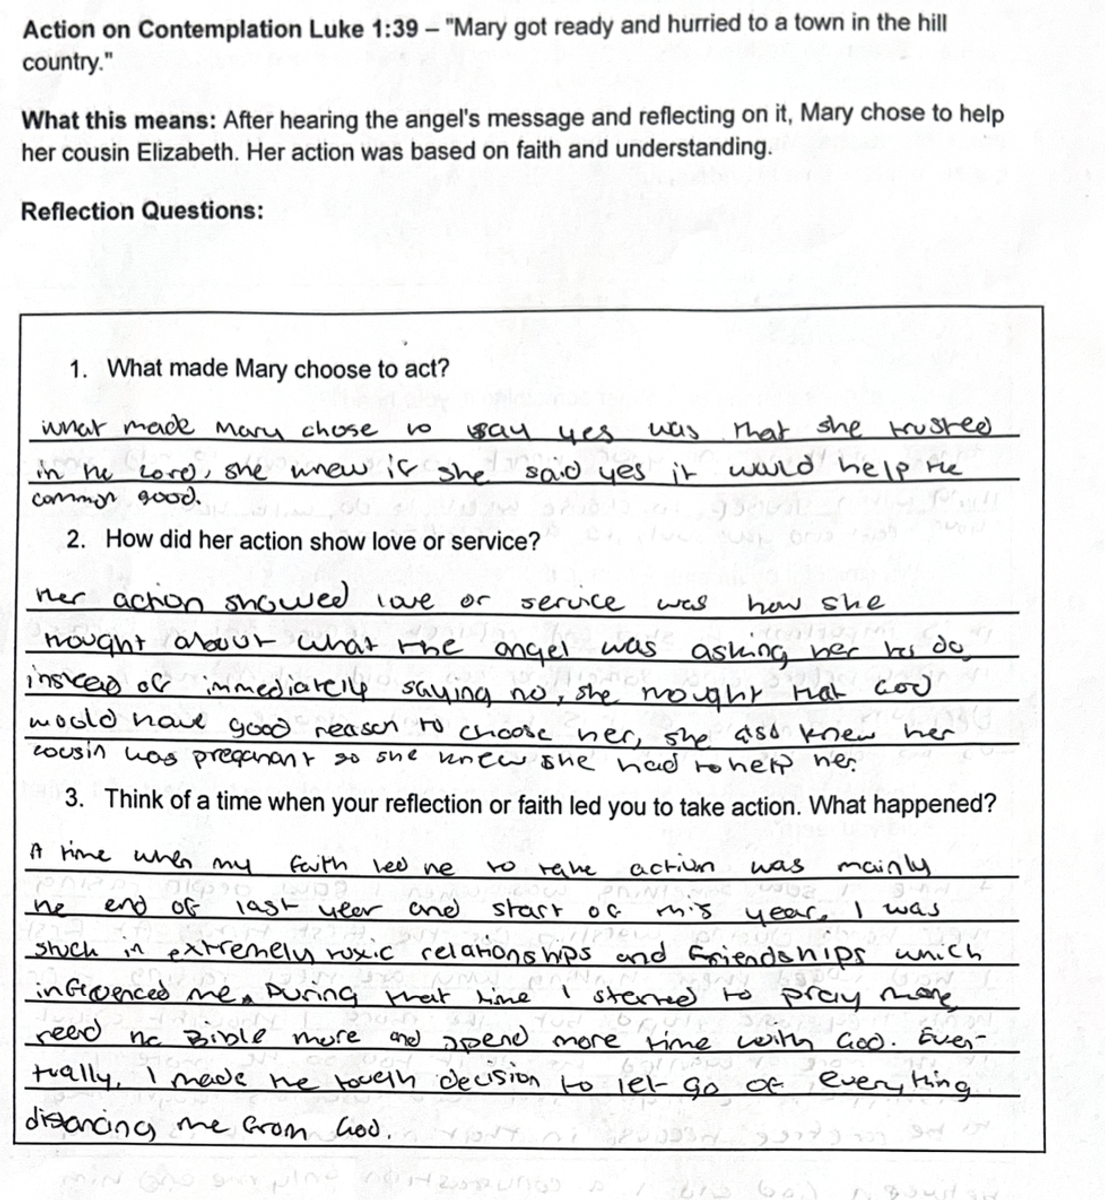 Action on Contemplation Luke 1:39 – "Mary got ready and hurried to a town in the hill
country."
What this means: After hearing the angel's message and reflecting on it, Mary chose to help
her cousin Elizabeth. Her action was based on faith and understanding.
Reflection Questions:
1. What made Mary choose to act?
what made Mary chose to say yes was that she trusted
in the Lord, she knew if she said yes it would help the
common good.
2. How did her action show love or service?
Her action showed love or service was how she
thought about what the angel was asking her to do,
instead of immediately saying no, she thought that God
would have good reason to choose her, she also knew her
cousin was preganant so she knew she had to help her.
3. Think of a time when your reflection or faith led you to take action. What happened?
A time when my faith led me to take action was mainly
the end of last year and start of this year, I was
stuck in extremely toxic relationships and friendships which
influenced me. During that time I started to pray more
read the Bible more and spend more time with God. Even-
tually, I made the tough decision to let go of everything
disancing me from God.